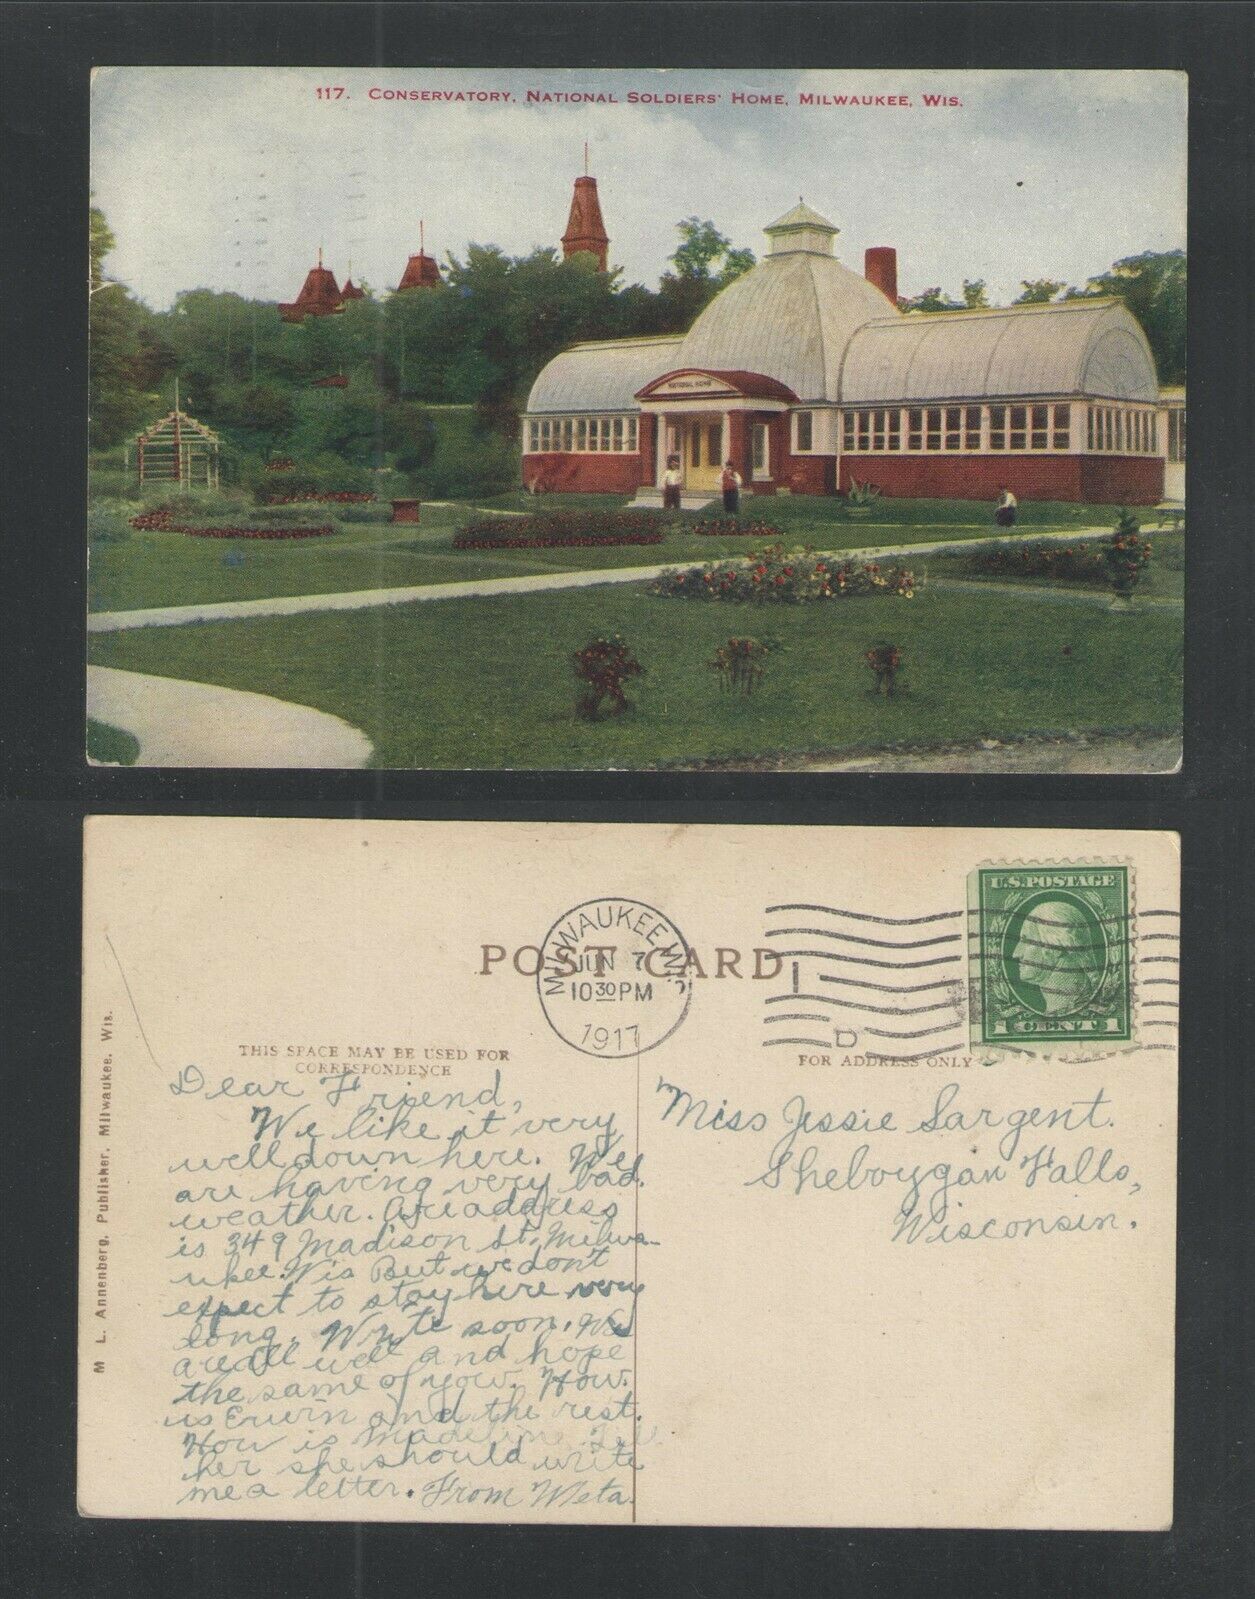 117. CONSERVATORY, NATIONAL SOLDIERS' HOME, MILWAUKEE, WIS.
NATIONAL HOME
POST CARD
MILWAUKEE, WIS.
JUN 7
10 30 PM
1917
U.S. POSTAGE
1 CENT 1
THIS SPACE MAY BE USED FOR
CORRESPONDENCE
FOR ADDRESS ONLY
M. L. Annenberg, Publisher, Milwaukee, Wis.
Dear Friend,
We like it very
well down here. We
are having very bad.
weather. Are address
is 349 Madison St. Milwa-
ukee. Wis But we don't
expect to stay here very
long. Write soon. We
are all well and hope
the same of you. How.
is Erwin and the rest.
How is Madeline Tell
her she should write
me a letter. From Meta.
Miss Jessie Sargent.
Sheboygan Falls,
Wisconsin.